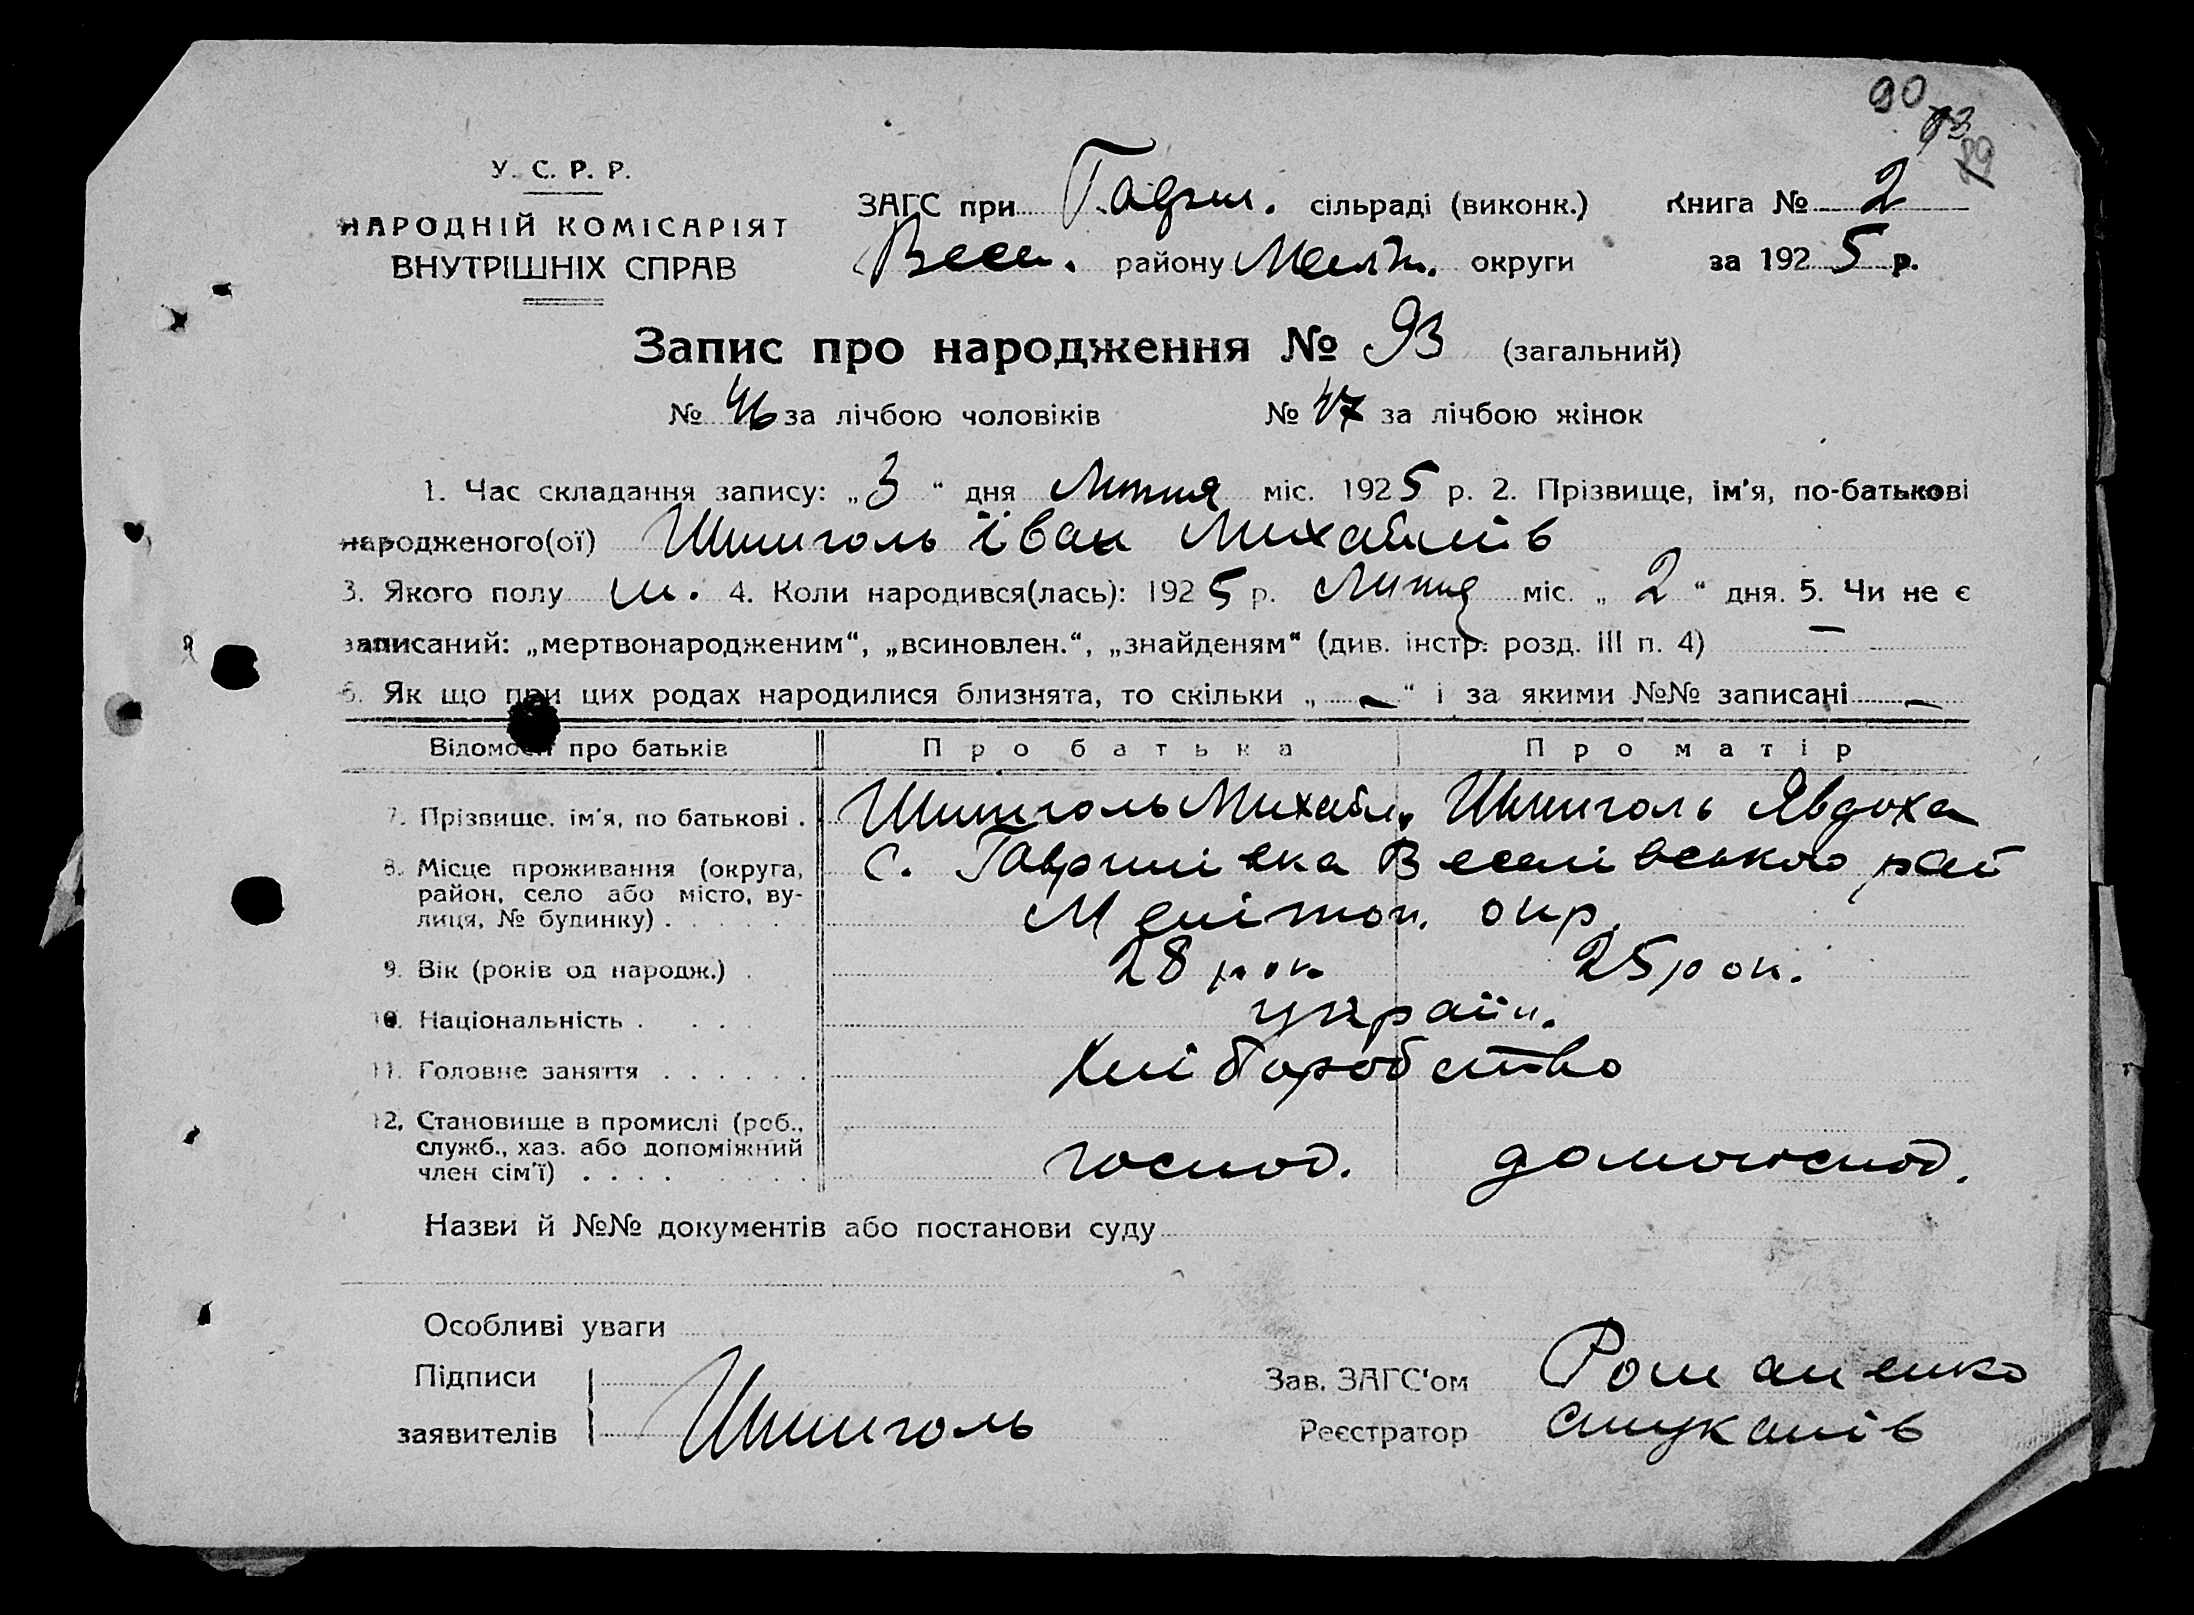 90
73
79
У. С. Р. Р.
НАРОДНІЙ КОМІСАРІЯТ
ВНУТРІШНІХ СПРАВ
ЗАГС при Гаврил. сільраді (виконк.) Книга № 2
Весел. району Меліт. округи за 1925 р.
Запис про народження № 93 (загальний)
№ 46 за лічбою чоловіків № 47 за лічбою жінок
1. Час складання запису: „3“ дня Липня міс. 1925 р. 2. Прізвище, ім'я, по-батькові
народженого(ої) Шпиголь Іван Михайлів
3. Якого полу ч. 4. Коли народився(лась): 1925 р. Липня міс. „2“ дня. 5. Чи не є
записаний: „мертвонародженим“, „всиновлен.“, „знайденям“ (див. інстр. розд. III п. 4) —
6. Як що при цих родах народилися близнята, то скільки „—“ і за якими №№ записані —
Відомості про батьків Про батька Про матір
7. Прізвище, ім'я, по батькові . Шпиголь Михайл. Шпиголь Явдоха
8. Місце проживання (округа, с. Гаврилівка Веселівського рай
район, село або місто, ву-
лиця, № будинку) . . . . . Мелітоп. окр.
9. Вік (років од народж.) . 28 рок 25 рок.
10. Національність . . . . україн.
11. Головне заняття . . . . . . Хліборобство
12. Становище в промислі (роб.,
служб., хаз. або допоміжний
член сім'ї) . . . . господ. домогоспод.
Назви й №№ документів або постанови суду
Особливі уваги
Підписи Зав. ЗАГС'ом Романенко
заявителів Шпиголь Реєстратор